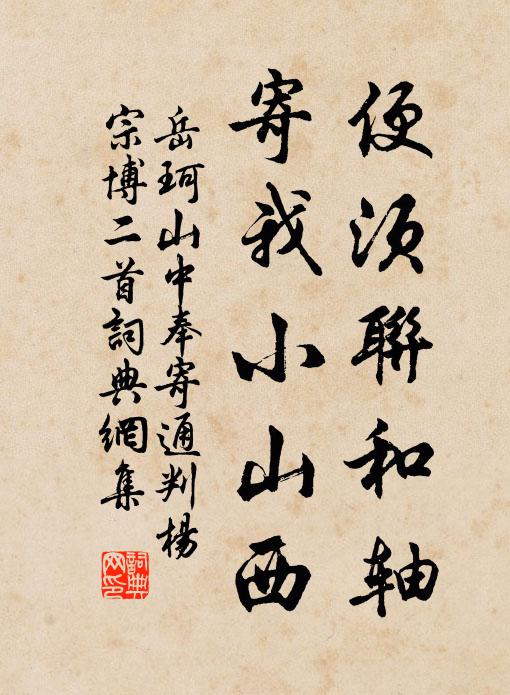 便須聯和轴
寄我小山西
岳珂山中奉寄通判楊
宗博二首詞典網集
詞典网印